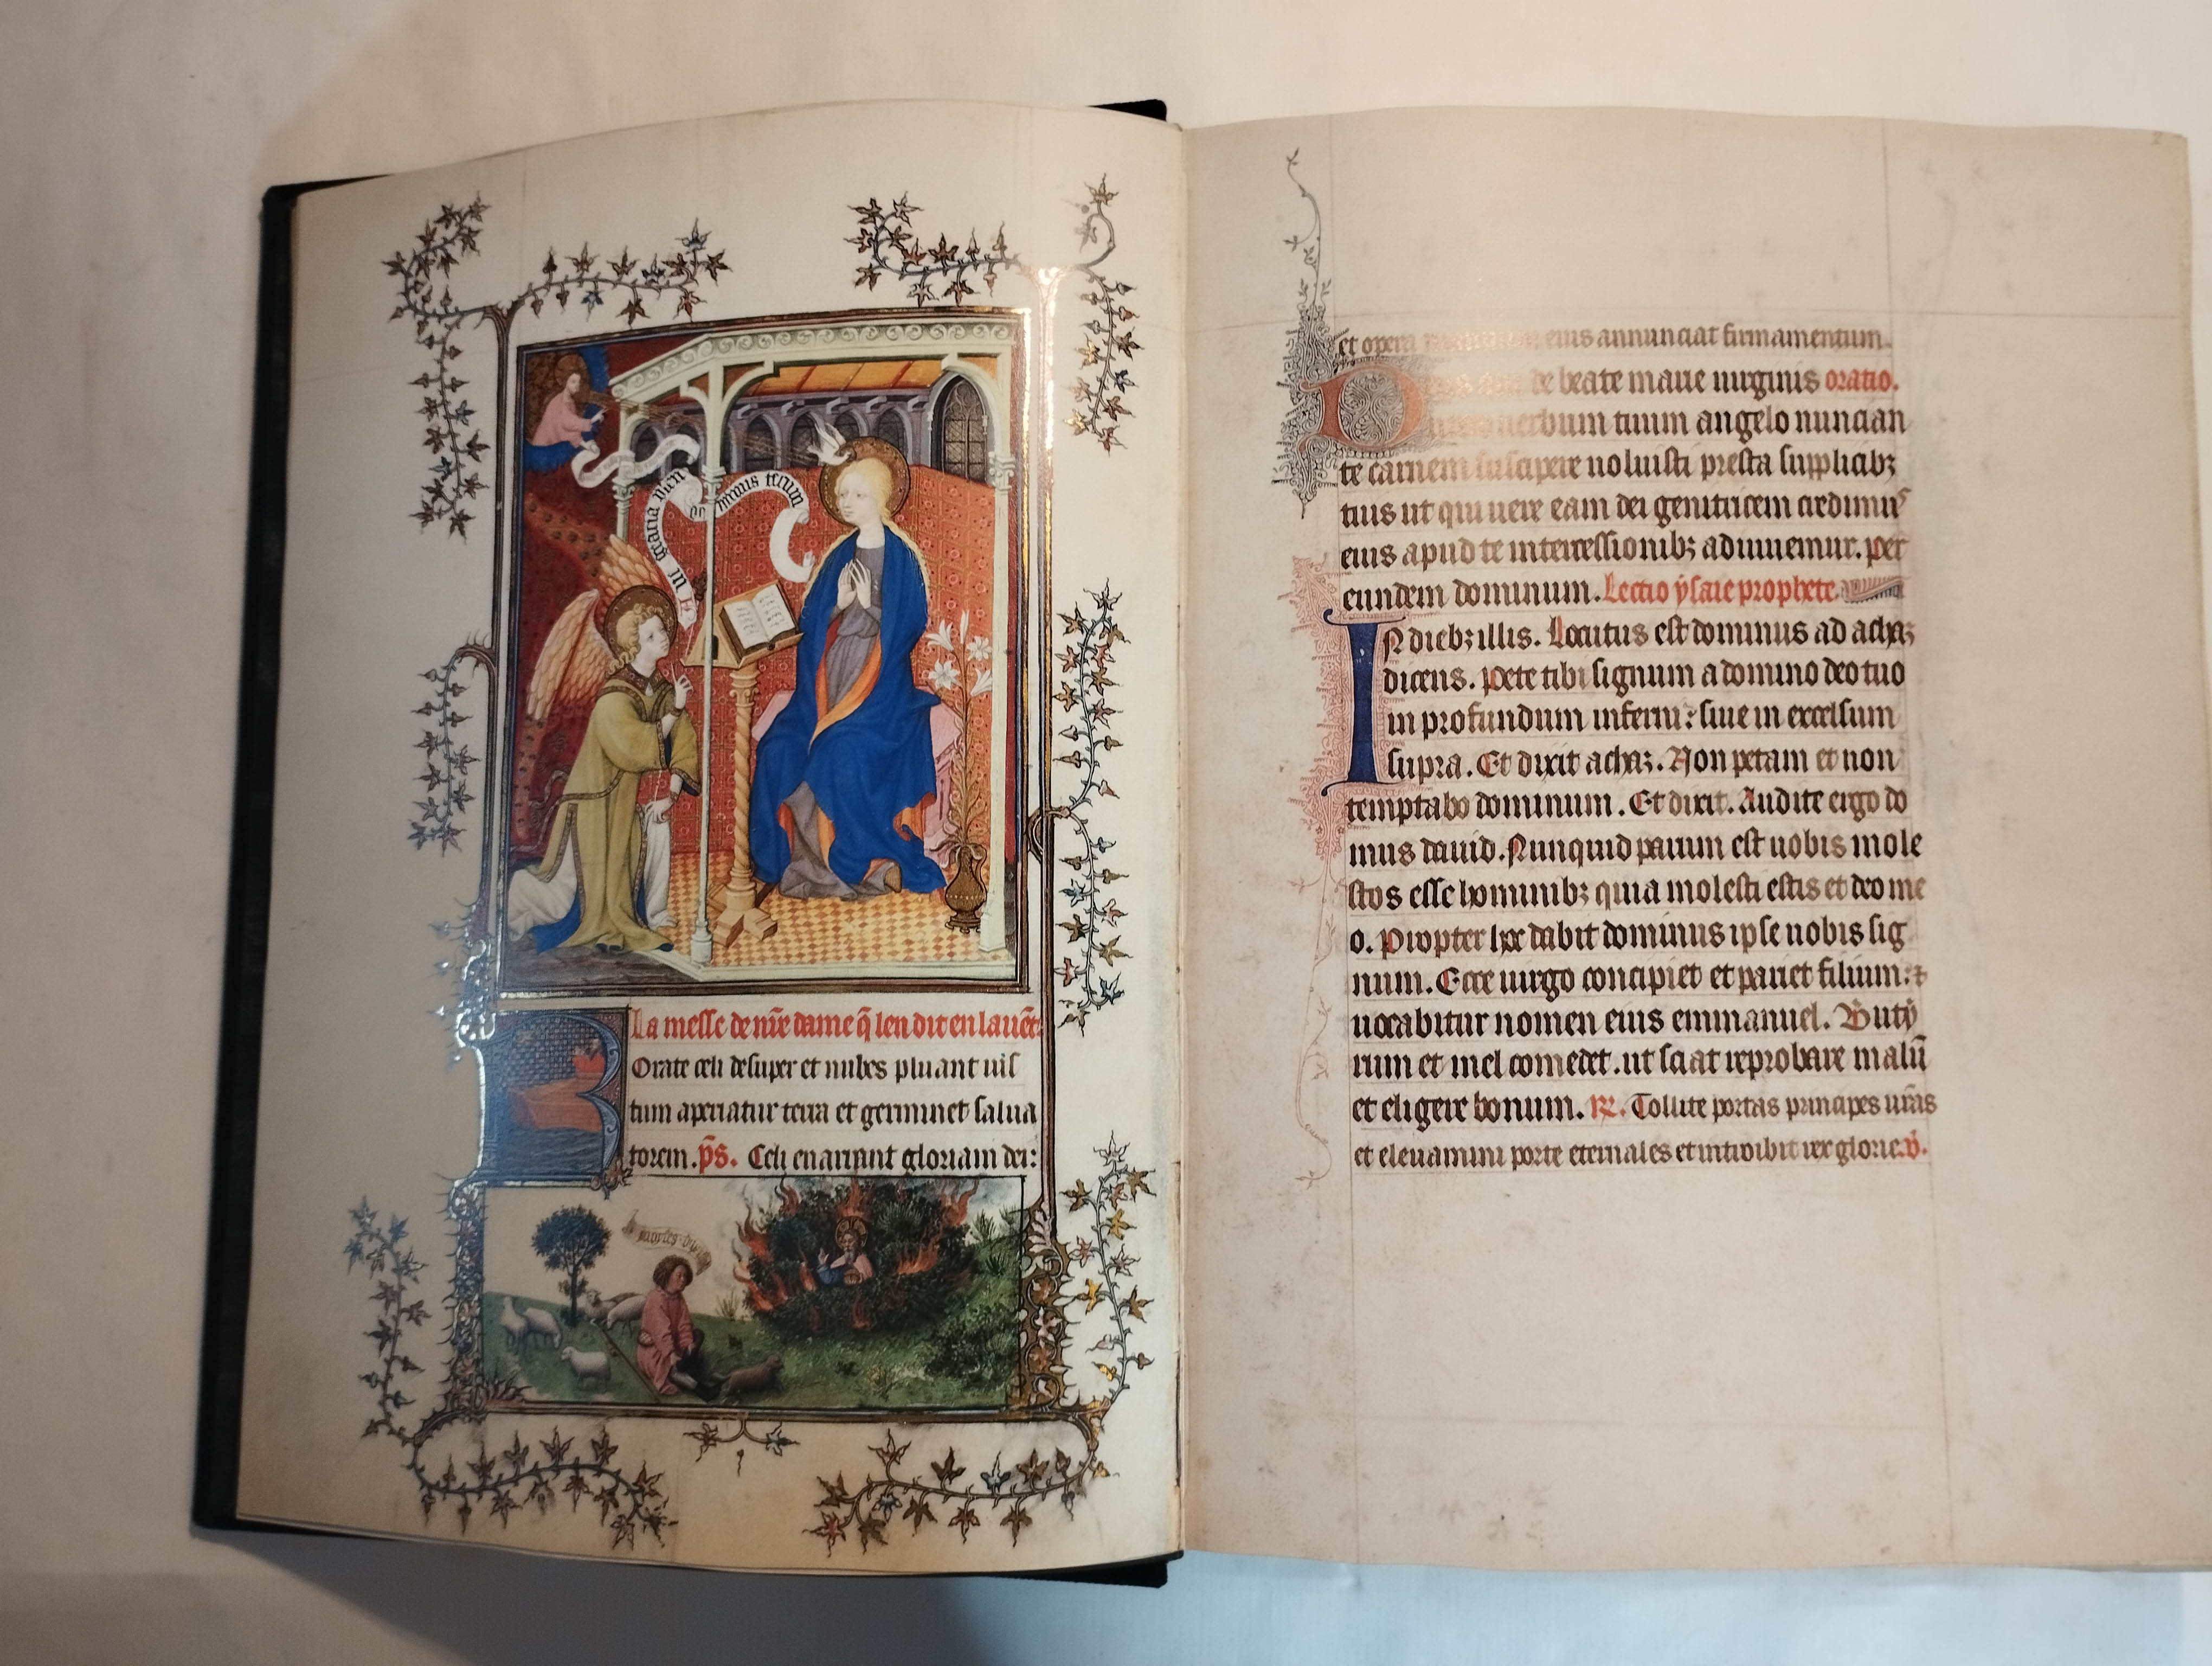 gracia plena
dominus tecum
La messe de nr̃e dame q̃ len dit en lauẽt
Rorate celi desuper et nubes pluant iuſ
tum aperiatur terra et germinet salua
torem. p̃s. Celi enarrant gloriam dei:
moyses
et opera manuum eius annunciat firmamentum.
de beate marie uirginis oratio.
uerbum tuum angelo nuncian
te carnem suscipere uoluisti presta supplicibꝫ
tuis ut qui uere eam dei genitricem credimus
eius apud te intercessionibꝫ adiuuemur. per
eundem dominum. Lectio ysaie prophete.
In diebꝫ illis. Locutus est dominus ad achaz
dicens. pete tibi signum a domino deo tuo
in profundum inferni: siue in excelsum
supra. Et dixit achaz. Non petam et non
temptabo dominum. Et dixit. Audite ergo do
mus dauid. Nunquid parum est uobis mole
stos esse hominibꝫ quia molesti estis et deo me
o. Propter hoc dabit dominus ipse uobis sig
num. Ecce uirgo concipiet et pariet filium: ⁊
uocabitur nomen eius emmanuel. Buty
rum et mel comedet. ut sciat reprobare malũ
et eligere bonum. R. Tollite portas principes ur̃as
et eleuamini porte eternales et introibit rex glorie. v̉.